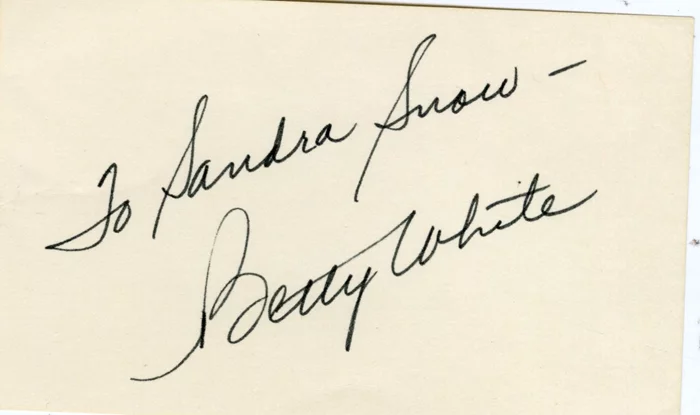 To Sandra Snow -
Betty White